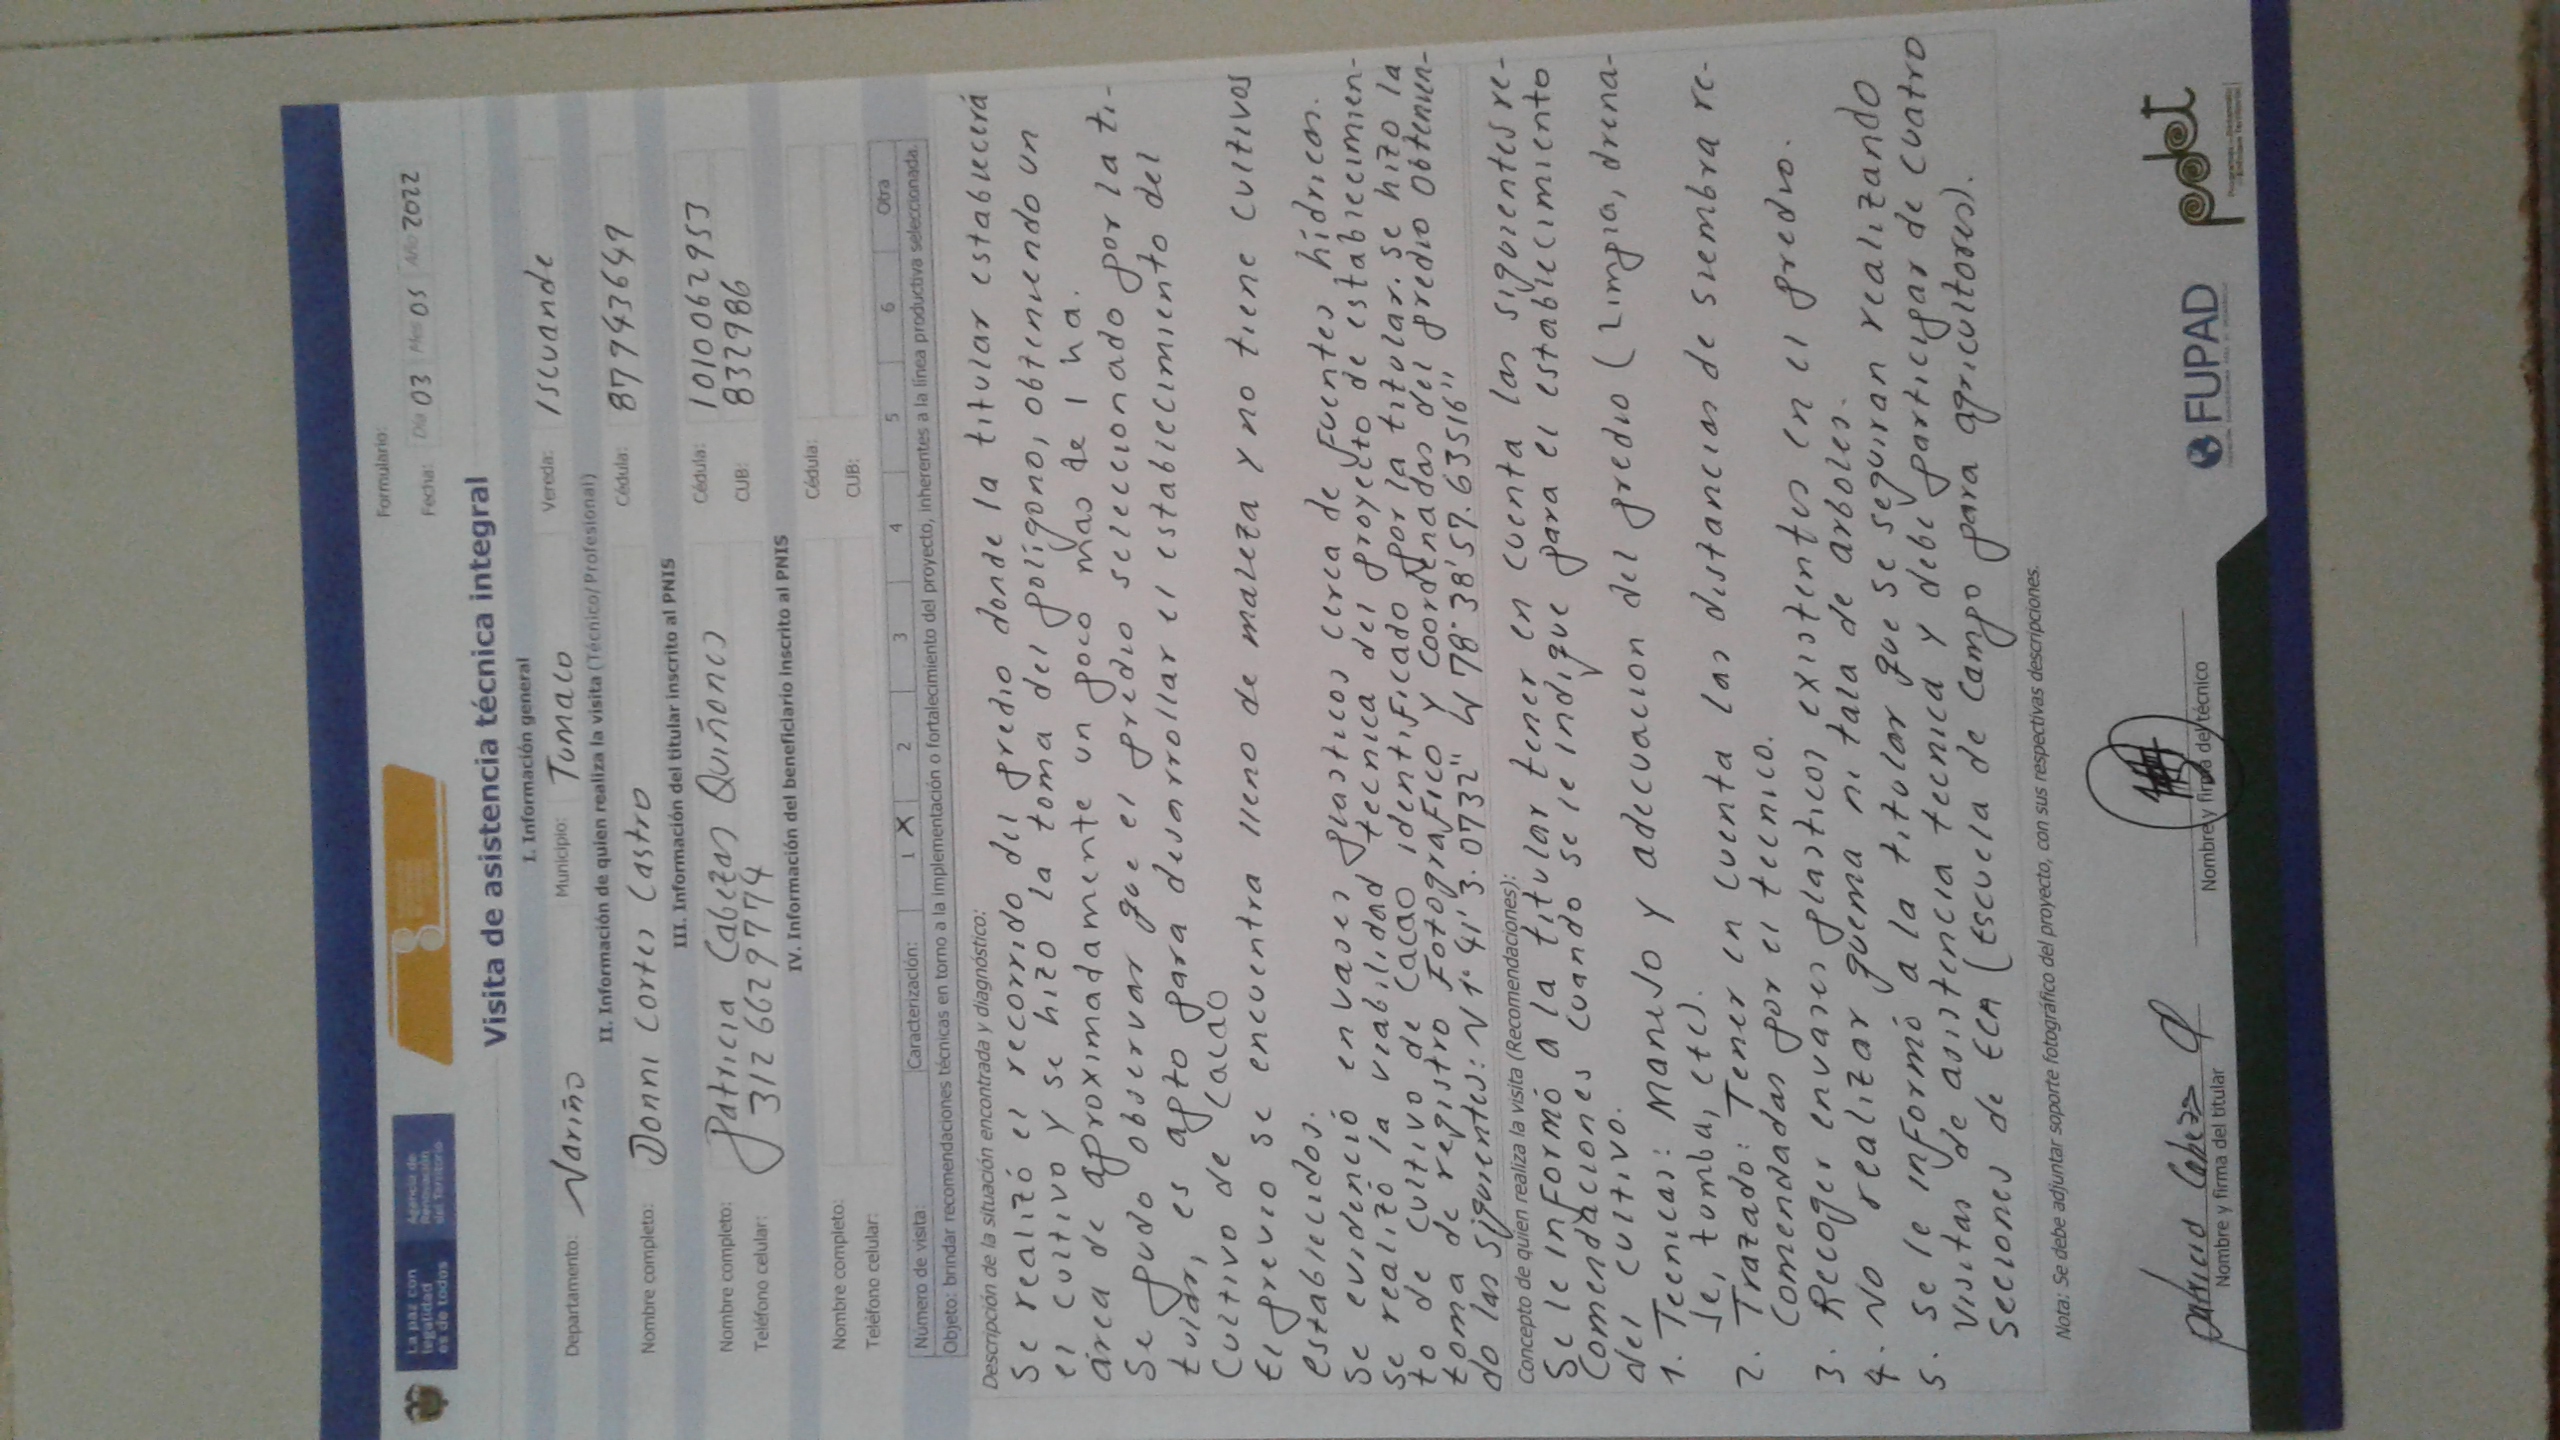 La paz con
legalidad
es de todos
Agencia de
Renovación
del Territorio
Formulario:
Fecha: Día 03 Mes 05 Año 2022
Visita de asistencia técnica integral
I. Información general
Departamento: Nariño Municipio: Tumaco Vereda: Iscuande
II. Información de quien realiza la visita (Técnico/Profesional)
Nombre completo: Donni Cortes Castro Cédula: 87943649
III. Información del titular inscrito al PNIS
Nombre completo: Patricia Cabezas Quiñones Cédula: 1010062953
Teléfono celular: 3126629774 CUB: 832986
IV. Información del beneficiario inscrito al PNIS
Nombre completo: Cédula:
Teléfono celular: CUB:
Número de visita: Caracterización: 1 X 2 3 4 5 6 Otra
Objeto: brindar recomendaciones técnicas en torno a la implementación o fortalecimiento del proyecto, inherentes a la línea productiva seleccionada.
Descripción de la situación encontrada y diagnóstico:
Se realizó el recorrido del predio donde la titular establecerá
el cultivo y se hizo la toma del polígono, obteniendo un
área de aproximadamente un poco mas de 1 ha.
Se pudo observar que el predio seleccionado por la ti-
tular, es apto para desarrollar el establecimiento del
Cultivo de Cacao
El previo se encuentra lleno de maleza y no tiene cultivos
establecidos.
Se evidenció envases plasticos cerca de fuentes hídricas.
Se realizó la viabilidad tecnica del proyecto de establecimien-
to de cultivo de Cacao identificado por la titular. se hizo la
toma de registro Fotografico y coordenadas del predio Obtenien-
do las siguientes: N 1° 41' 3.0732" W 78° 38' 57.635516"
Concepto de quien realiza la visita (Recomendaciones):
Se le informó a la titular tener en cuenta las siguientes re-
Comendaciones cuando se le indique para el establecimiento
del cultivo.
1. Tecnicas: Manejo y adecuacion del predio (Limpia, drena-
je, tumba, etc).
2. Trazado: Tener en cuenta las distancias de siembra re-
Comendadas por el tecnico.
3. Recoger envases plasticos existentes en el predio.
4. No realizar quema ni tala de arboles.
5. Se le informó a la titular que se seguiran realizando
Visitas de asistencia tecnica y debe participar de cuatro
Secciones de ECA (Escuela de Campo para agricultores).
Nota: Se debe adjuntar soporte fotográfico del proyecto, con sus respectivas descripciones.
Patricia Cabezas
Nombre y firma del titular Nombre y firma del técnico
FUPAD
pdet